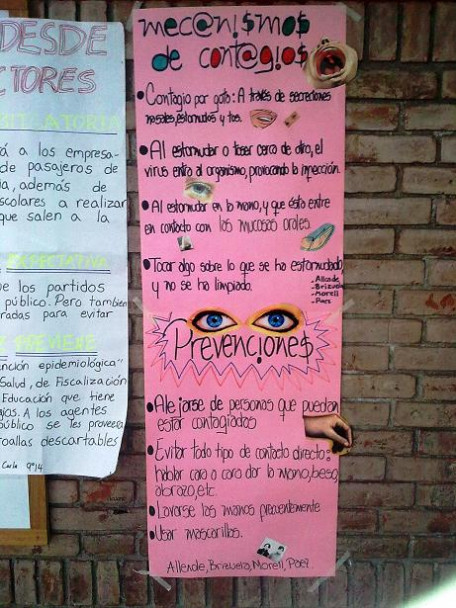 DESDE
CTORES
á a los empresa-
de pasajeros de
además de
scolares a realizar
que salen a la
EXPECTATIVA
e los partidos
público. Pero tambien
radas para evitar
PREVIENE
nción epidemiológica"
Salud, de Fiscalización
Educación que tiene
A los agentes
público se les proveera
toallas descartables
Carla 9º14
mec@n!$mo$
de cont@g!o$
•Contagio por gota: A través de secreciones
nasales, estornudos y tos.
•Al estornudar o toser cerca de otro, el
virus entra al organismo, provocando la infección.
•Al estornudar en la mano, y que ésta entre
en contacto con las mucosas orales.
•Tocar algo sobre lo que se ha estornudado,
y no se ha limpiado.
-Allende
-Brizuela
-Morell
-Paez
Prevenc!one$
•Alejarse de personas que puedan
estar contagiadas
•Evitar todo tipo de contacto directo:
hablar cara a cara dar la mano, beso,
abrazo, etc.
•Lavarse las manos frecuentemente
•Usar mascarillas.
Allende, Brizuela, Morell, Paez.